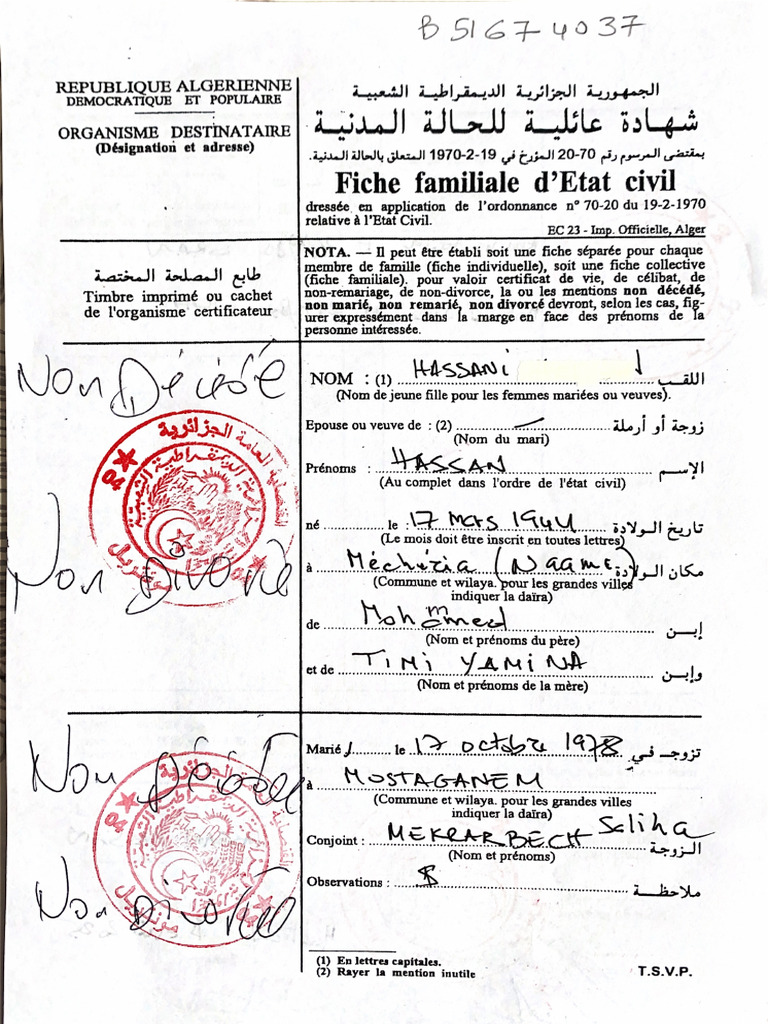 B 5167 4037
REPUBLIQUE ALGERIENNE
DEMOCRATIQUE ET POPULAIRE
ORGANISME DESTINATAIRE
(Désignation et adresse)
الجمهورية الجزائرية الديمقراطية الشعبية
شهادة عائلية للحالة المدنية
بمقتضى المرسوم رقم 70-20 المؤرخ في 19-2-1970 المتعلق بالحالة المدنية.
Fiche familiale d'Etat civil
dressée en application de l'ordonnance n° 70-20 du 19-2-1970
relative à l'Etat Civil.
EC 23 - Imp. Officielle, Alger
طابع المصلحة المختصة
Timbre imprimé ou cachet
de l'organisme certificateur
NOTA. — Il peut être établi soit une fiche séparée pour chaque
membre de famille (fiche individuelle), soit une fiche collective
(fiche familiale). pour valoir certificat de vie, de célibat, de
non-remariage, de non-divorce, la ou les mentions non décédé,
non marié, non remarié, non divorcé devront, selon les cas, fig-
urer expressément dans la marge en face des prénoms de la
personne intéressée.
Non Décédé
NOM : (1) HASSANI اللقب
(Nom de jeune fille pour les femmes mariées ou veuves).
Epouse ou veuve de : (2) زوجة أو أرملة
(Nom du mari)
Prénoms : HASSAN الإسم
(Au complet dans l'ordre de l'état civil)
Non Divorcé
né le : 17 mars 1944 تاريخ الولادة
(Le mois doit être inscrit en toutes lettres)
à Méchéria (Naama) مكان الولادة
(Commune et wilaya. pour les grandes villes
indiquer la daïra)
de Mohammed إبن
(Nom et prénoms du père)
et de TIMI YAMINA وإبن
(Nom et prénoms de la mère)
Non Décédée
Marié le 17 octobre 1978 تزوج في
à MOSTAGANEM
(Commune et wilaya. pour les grandes villes
indiquer la daïra)
Conjoint : MEKRARBECH Saliha الزوجة
(Nom et prénoms)
Non divorcée
Observations : ملاحظة
(1) En lettres capitales.
(2) Rayer la mention inutile
T.S.V.P.